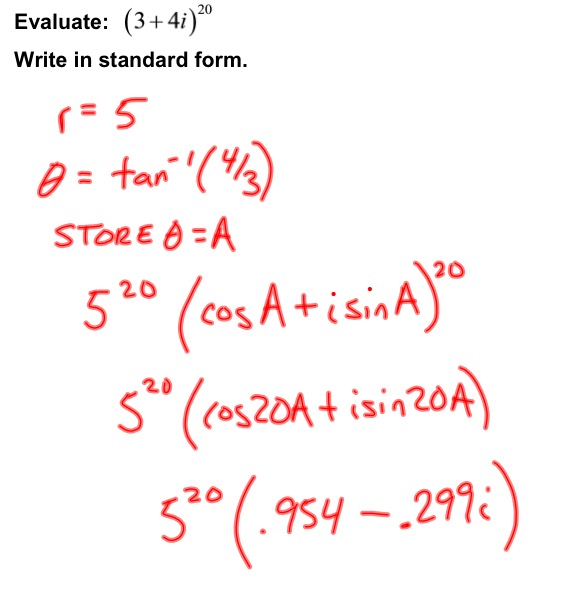 Evaluate: (3+4i)²⁰
Write in standard form.
r = 5
θ = tan⁻¹(4/3)
STORE θ = A
5²⁰ (cos A + i sin A)²⁰
5²⁰ (cos20A + i sin20A)
5²⁰ (.954 - .299i)